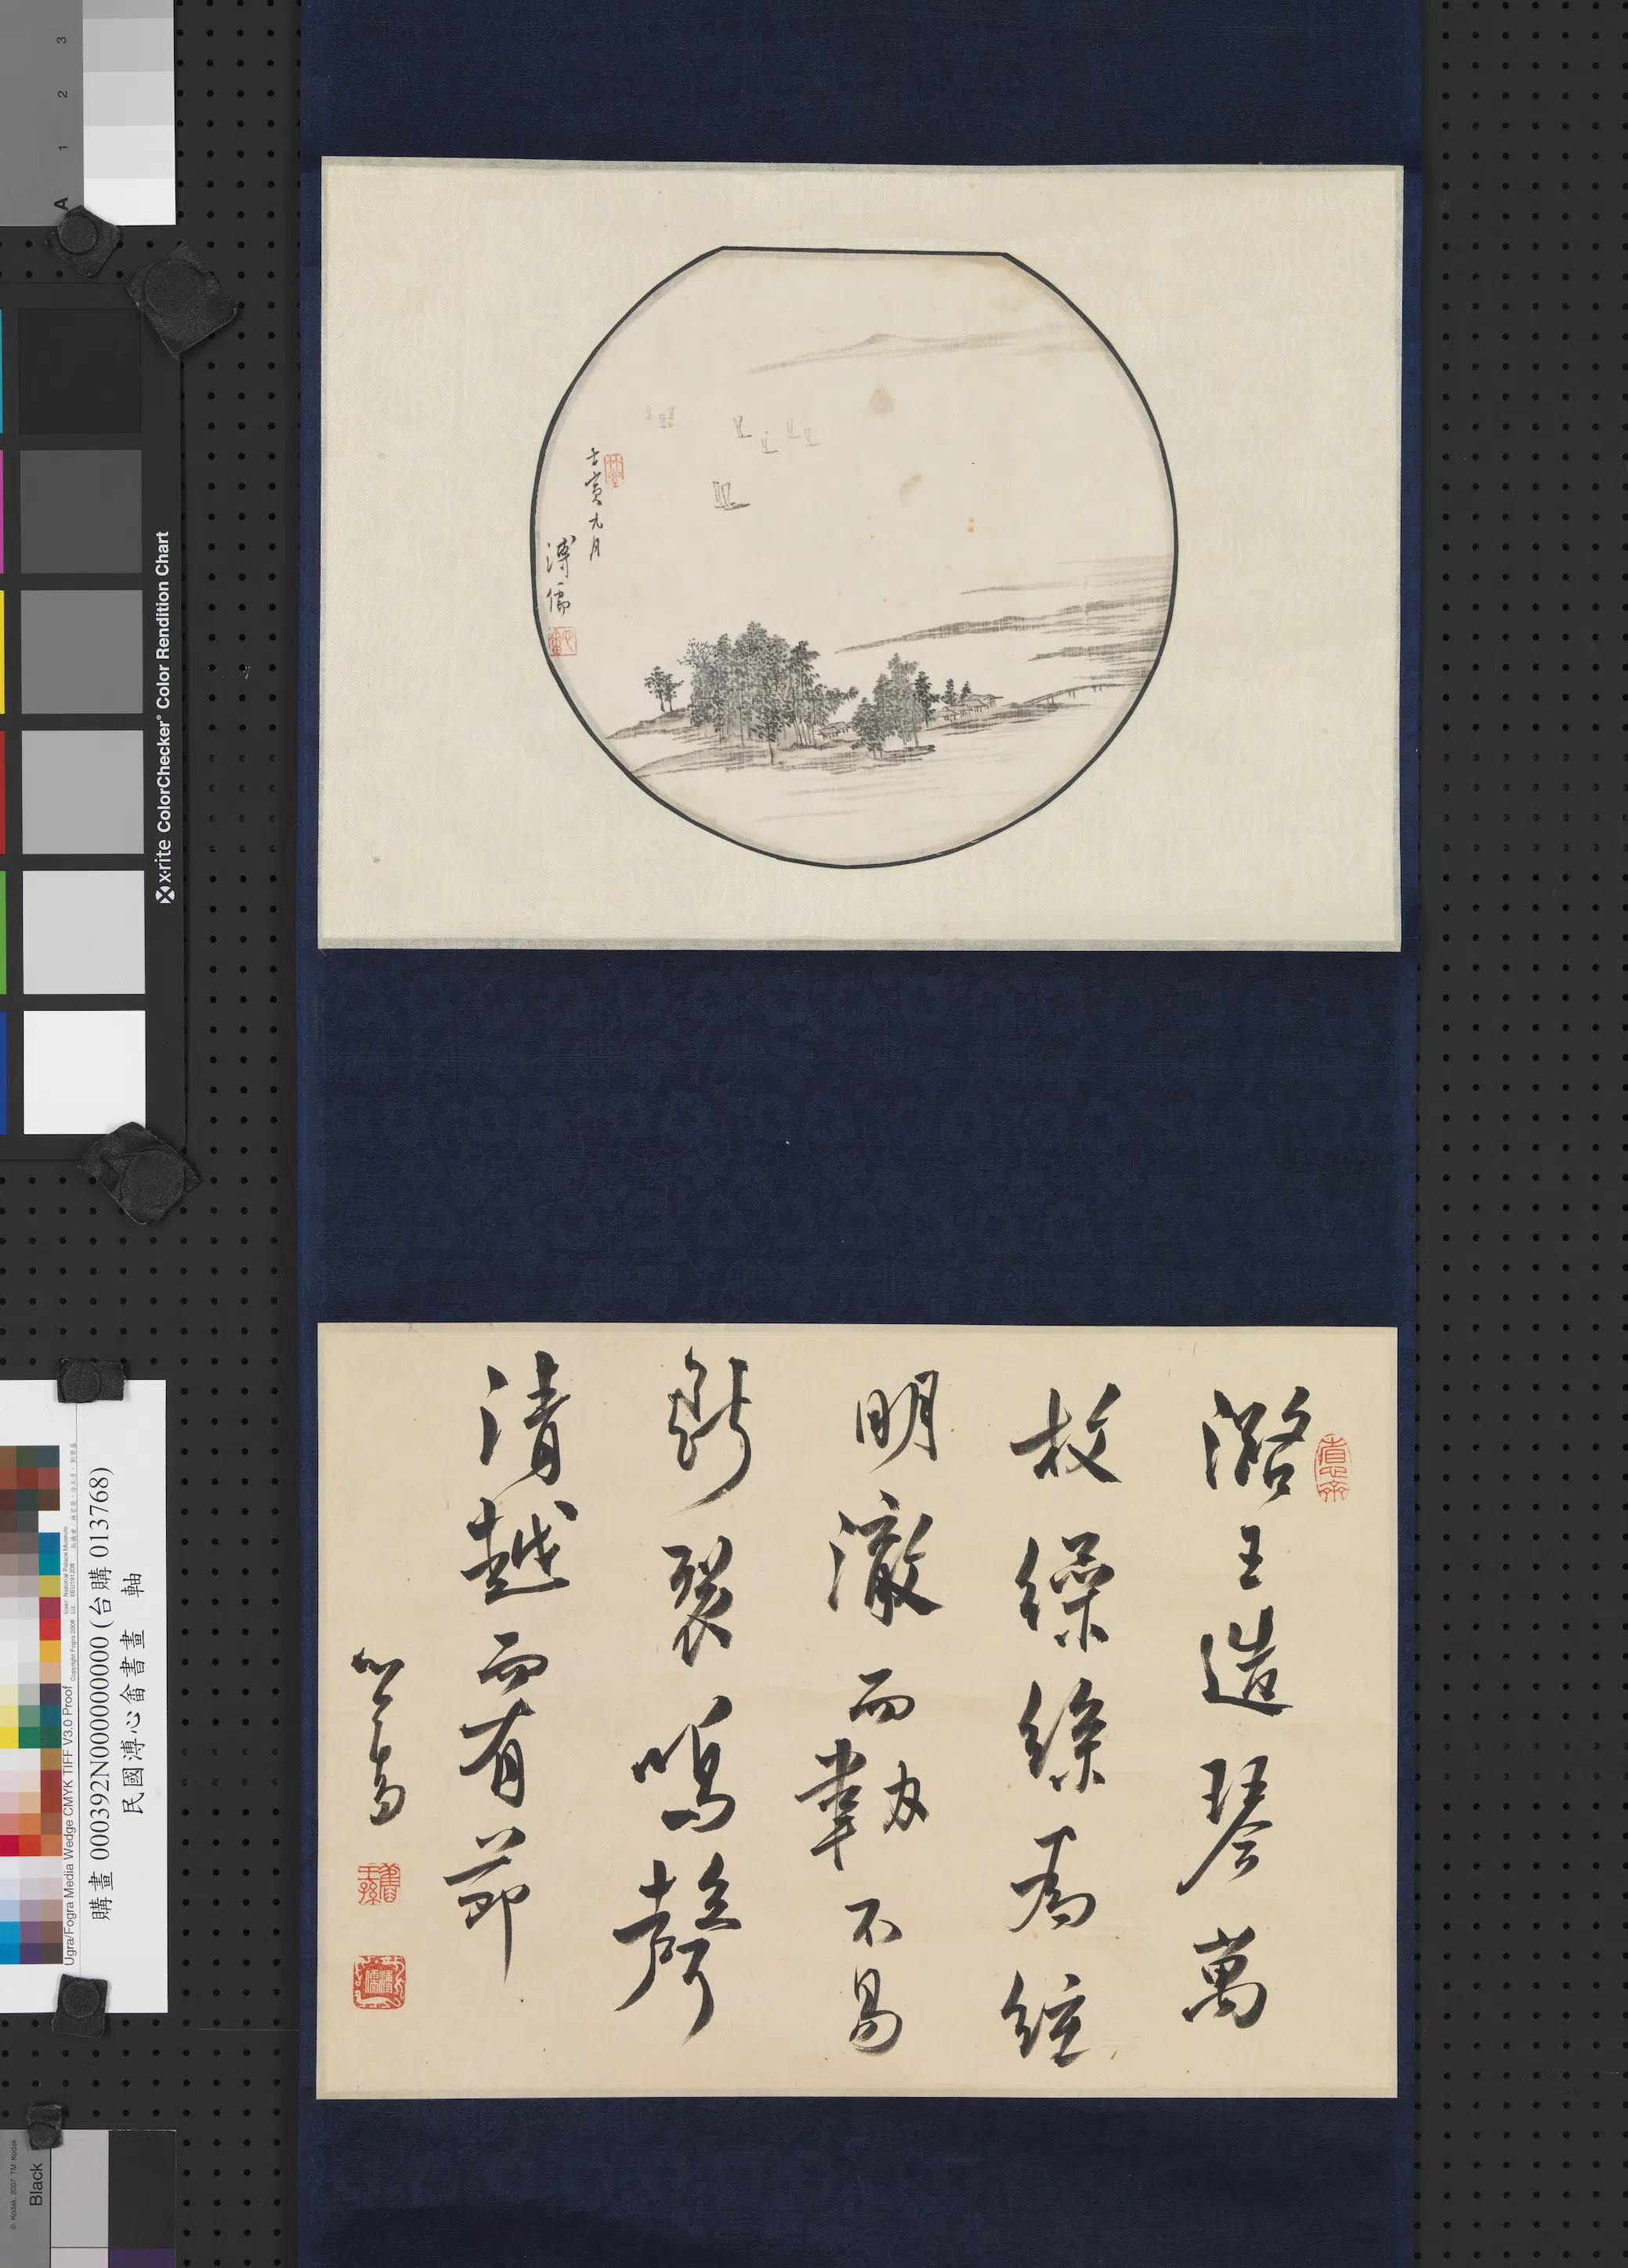 壬寅九月
溥儒
潞王造琴萬
枚繰絲為絃
明澈而韌不易
斷裂鳴聲
清越而有節
心畬
A 1 2 3
x-rite ColorChecker® Color Rendition Chart
購畫 000392N000000000 (台購 013768)
民國溥心畬書畫 軸
Ugra/Fogra Media Wedge CMYK TIFF V3.0 Proof
Copyright Fogra 2008
User: National Palace Museum
Black
© Kodak, 2007 TM: Kodak